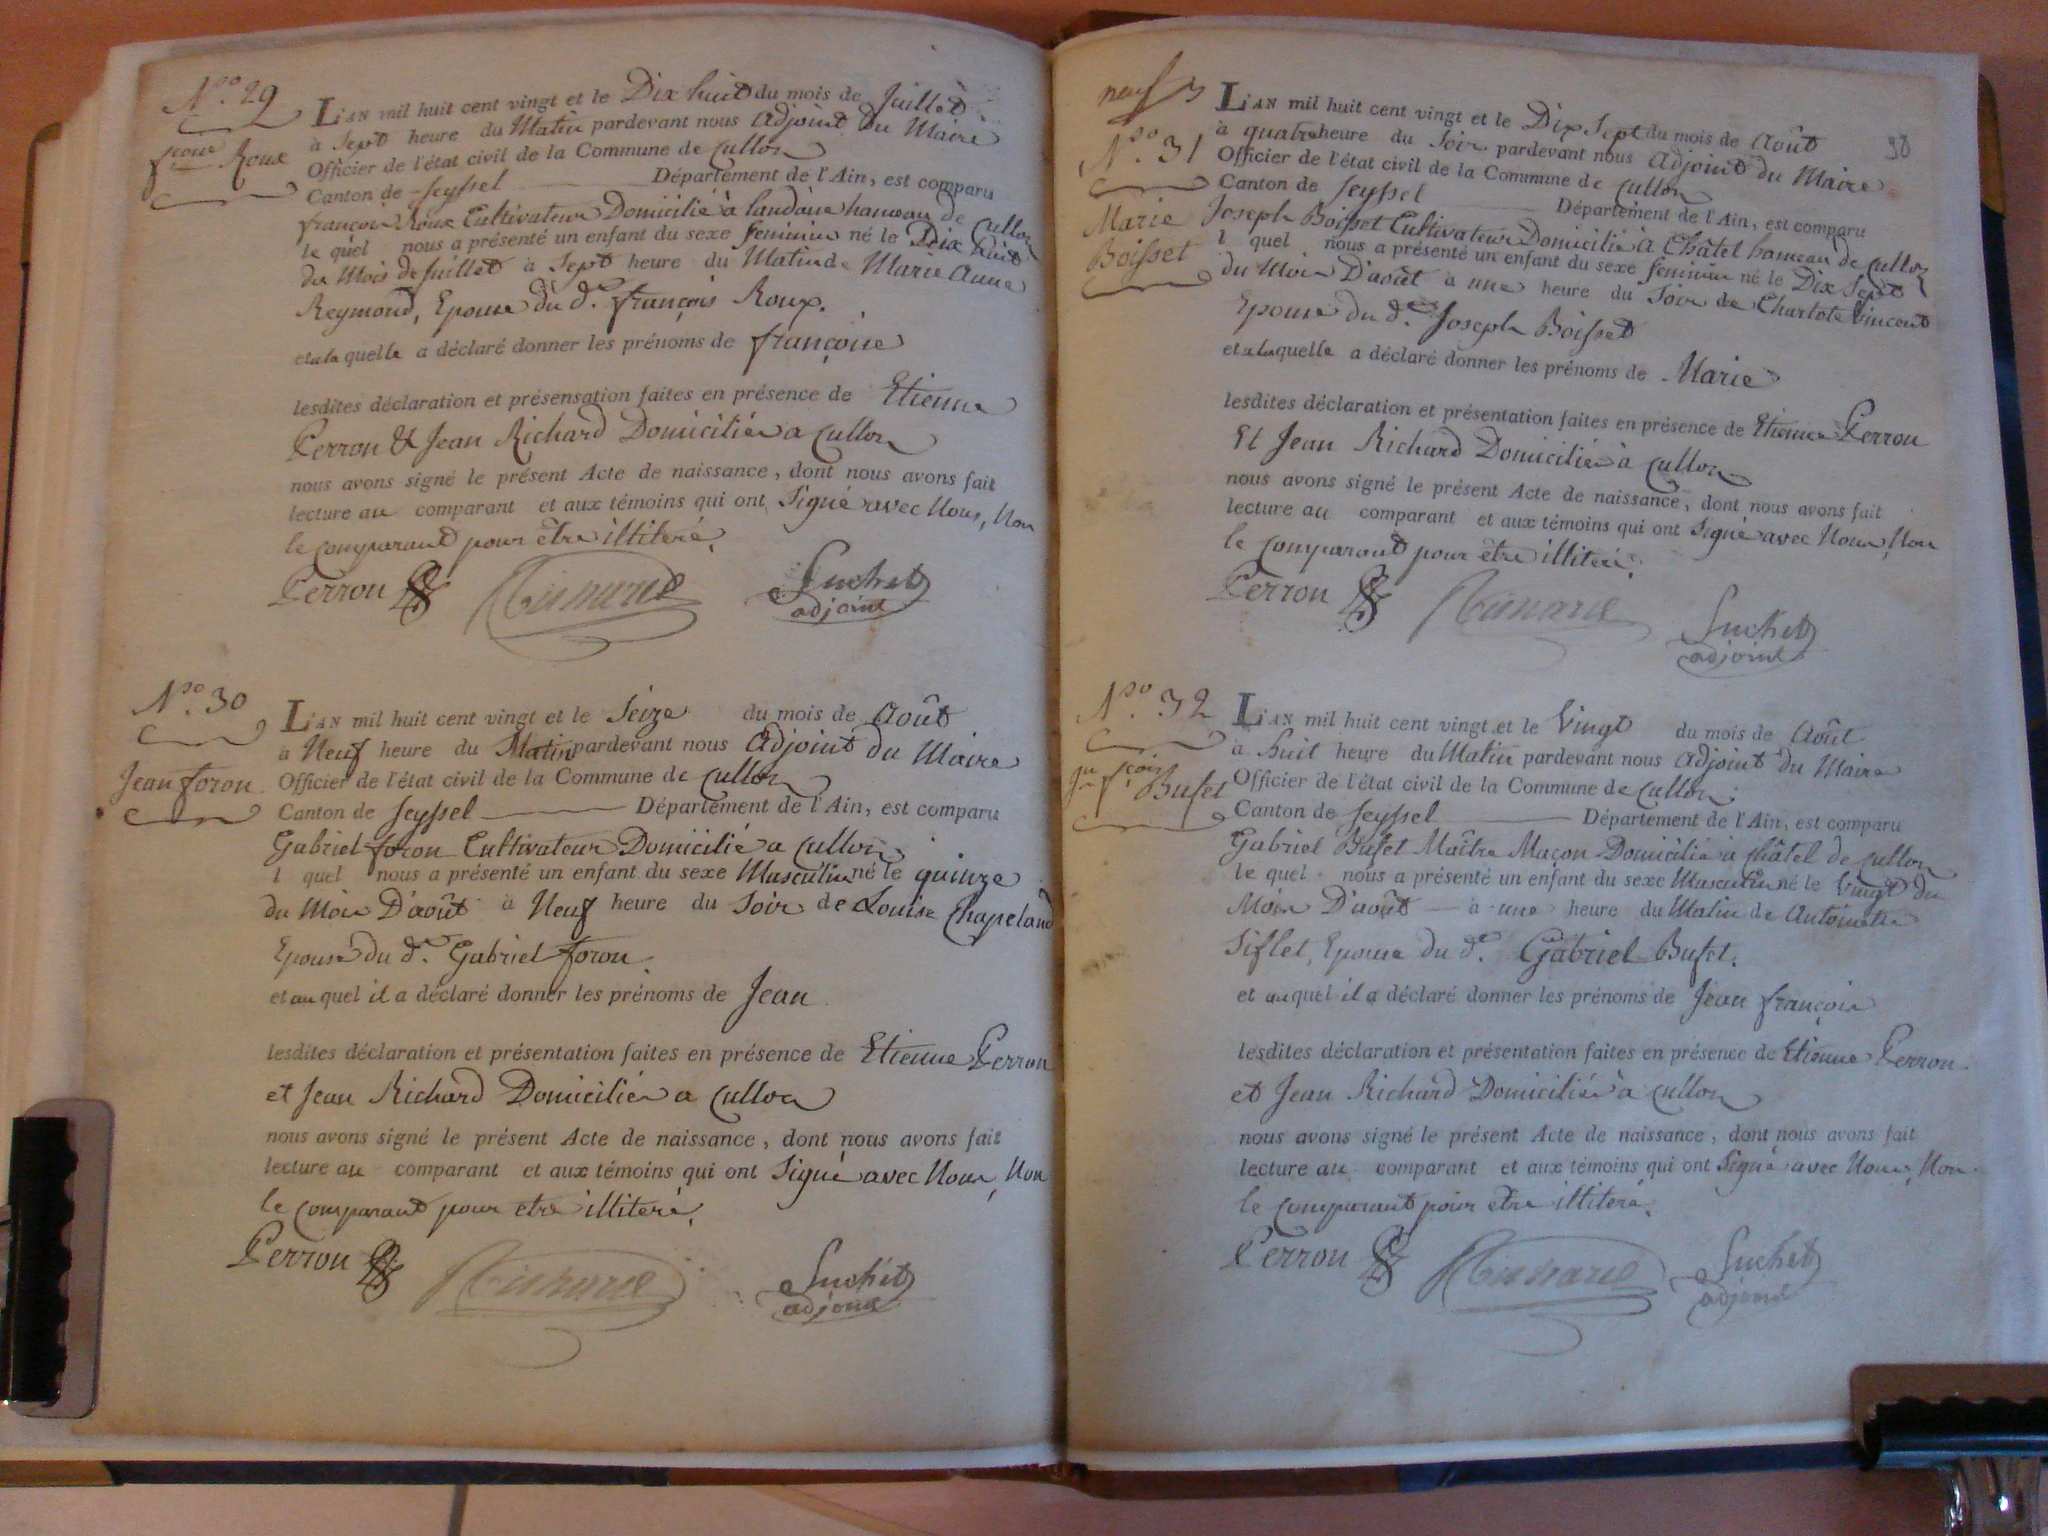 No. 29
Roux
L'AN mil huit cent vingt et le Dix huit du mois de Juillet
à Sept heure du Matin pardevant nous adjoint Du Maire
Officier de l'état civil de la Commune de Culloz
Canton de Seyssel Département de l'Ain, est comparu
françois Roux Cultivateur Domicilié à landaise hameau de Culloz
le quel nous a présenté un enfant du sexe feminin né le Dix huit
du Mois de Juillet à Sept heure du Matin de Marie Anne
Reymond, Epouse du d. françois Roux.
et a la quelle a déclaré donner les prénoms de françoise
lesdites déclaration et présensation faites en présence de Etienne
Perron & Jean Richard Domiciliés a Culloz
nous avons signé le présent Acte de naissance, dont nous avons fait
lecture au comparant et aux témoins qui ont Signé avec Nous, Non
le comparant pour être illiteré.
Perron Suchet
adjoint
No. 30
Jean foron
L'AN mil huit cent vingt et le Seize du mois de Août
à Neuf heure du Matin pardevant nous Adjoint du Maire
Officier de l'état civil de la Commune de Culloz
Canton de Seyssel Département de l'Ain, est comparu
Gabriel foron Cultivateur Domicilié a Culloz
l quel nous a présenté un enfant du sexe Masculin né le quinze
du Mois D'août à Neuf heure du Soir de Louise Chapeland
Epouse du d. Gabriel foron.
et au quel il a déclaré donner les prénoms de Jean
lesdites déclaration et présentation faites en présence de Etienne Perron
et Jean Richard Domiciliés a Culloz
nous avons signé le présent Acte de naissance, dont nous avons fait
lecture au comparant et aux témoins qui ont Signé avec Nous, Non
le comparant pour etre illiteré.
Perron Suchet
adjoint
neuf
98
No. 31
Marie
Boisset
L'AN mil huit cent vingt et le Dix Sept du mois de Août
à quatre heure du Soir pardevant nous adjoint du Maire
Officier de l'état civil de la Commune de Culloz
Canton de Seyssel Département de l'Ain, est comparu
Joseph Boisset Cultivateur Domicilié à Châtel hameau de Culloz
l quel nous a présenté un enfant du sexe feminin né le Dix Sept
du Mois D'août à une heure du Soir de Charlote Vincent
Epouse du d. Joseph Boisset
et a la quelle a déclaré donner les prénoms de Marie
lesdites déclaration et présentation faites en présence de Etienne Perron
Et Jean Richard Domiciliés à Culloz
nous avons signé le présent Acte de naissance, dont nous avons fait
lecture au comparant et aux témoins qui ont Signé avec Nous, Non
le comparant pour etre illiteré.
Perron Suchet
adjoint
No. 32
Bufet
L'AN mil huit cent vingt et le Vingt du mois de Août
à huit heure du Matin pardevant nous adjoint du Maire
Officier de l'état civil de la Commune de Culloz
Canton de Seyssel Département de l'Ain, est comparu
Gabriel Bufet Maître Maçon Domicilié a châtel de Culloz
le quel nous a présenté un enfant du sexe Masculin né le Vingt du
Mois D'août à une heure du Matin de Antoinette
Siflet, Epouse du d. Gabriel Bufet.
et au quel il a déclaré donner les prénoms de Jean françois
lesdites déclaration et présentation faites en présence de Etienne Perron
et Jean Richard Domiciliés à Culloz
nous avons signé le présent Acte de naissance, dont nous avons fait
lecture au comparant et aux témoins qui ont Signé avec Nous, Non
le comparant pour etre illiteré.
Perron Suchet
adjoint